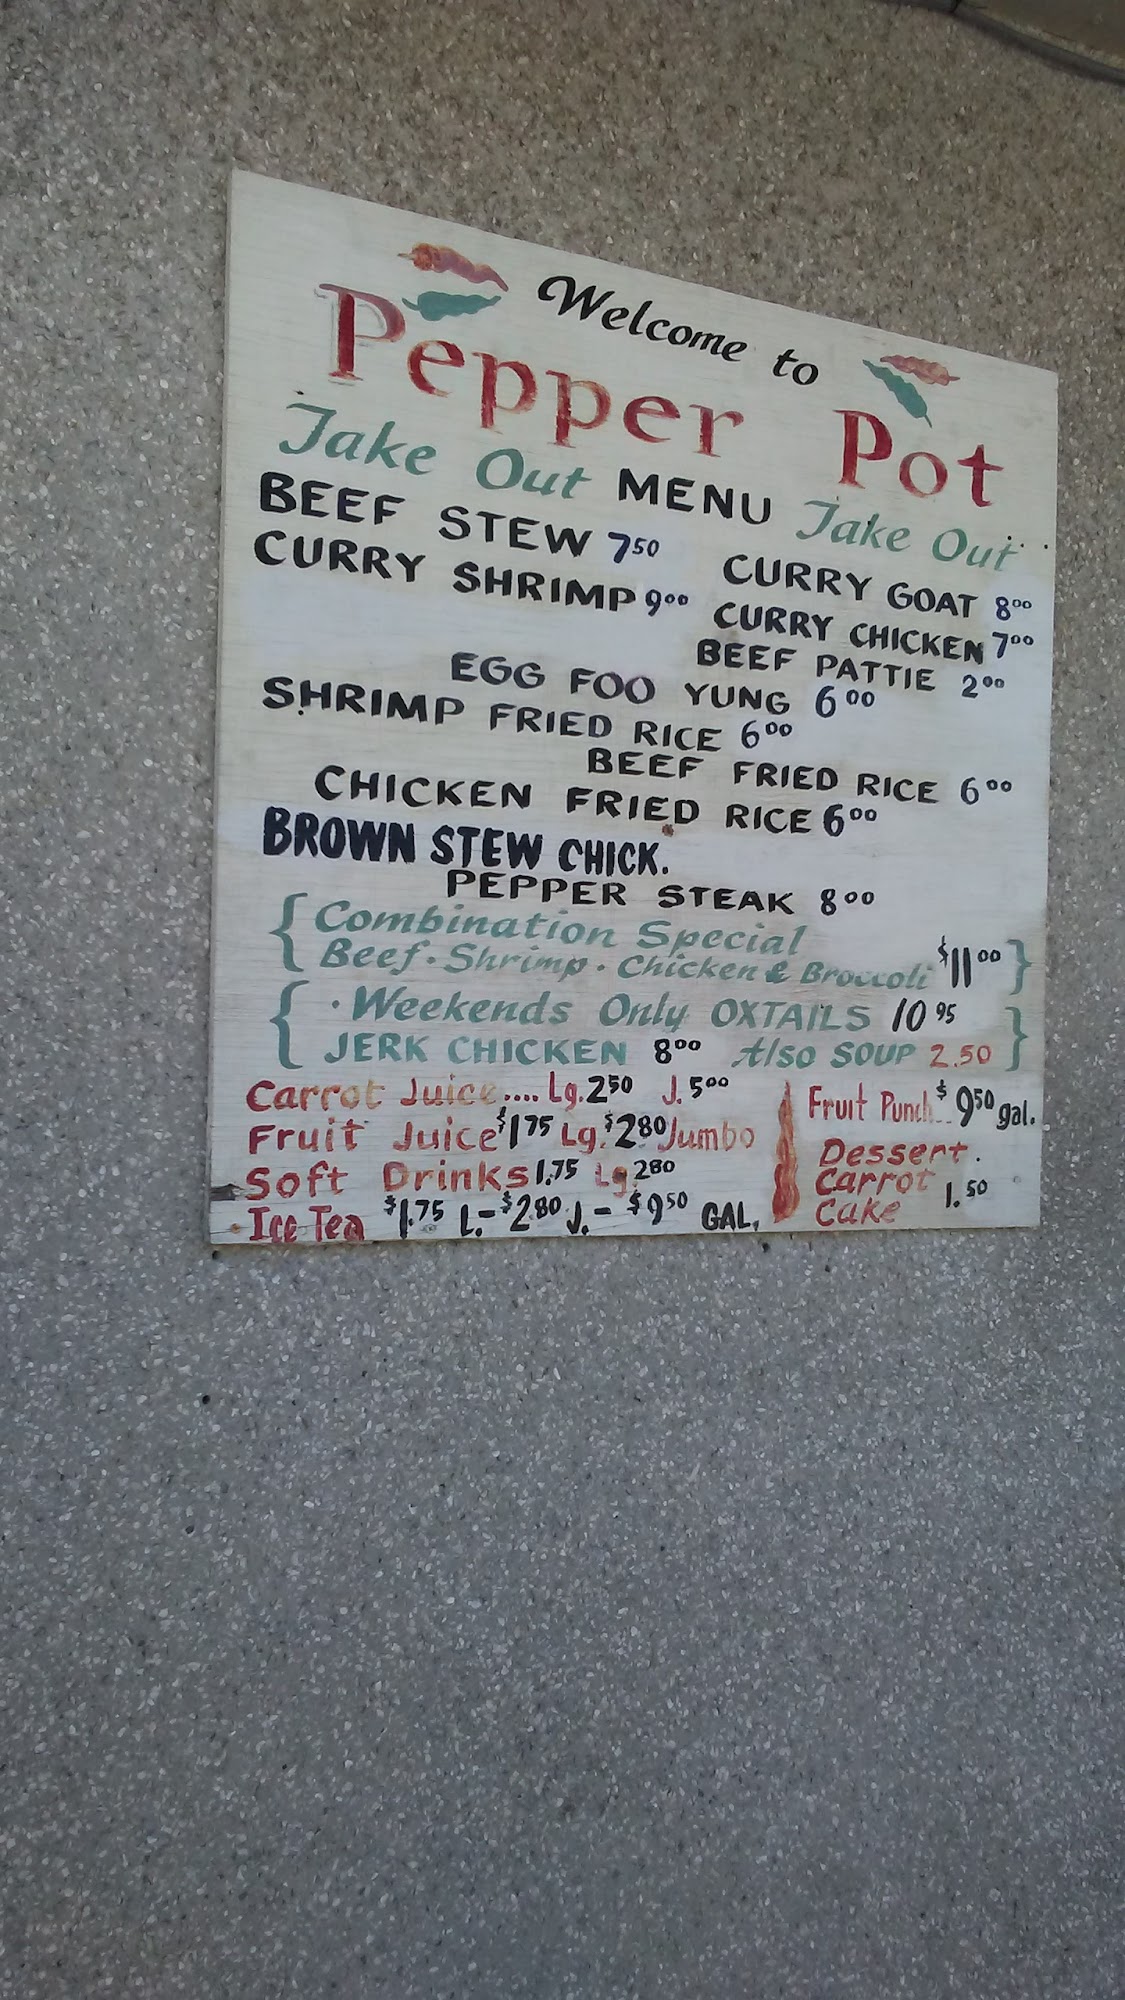 Welcome to
Pepper Pot
Take Out MENU Take Out
BEEF STEW 7.50
CURRY GOAT 8.00
CURRY SHRIMP 9.00
CURRY CHICKEN 7.00
BEEF PATTIE 2.00
EGG FOO YUNG 6.00
SHRIMP FRIED RICE 6.00
BEEF FRIED RICE 6.00
CHICKEN FRIED RICE 6.00
BROWN STEW CHICK.
PEPPER STEAK 8.00
{ Combination Special
Beef · Shrimp · Chicken & Broccoli $11.00 }
{ · Weekends Only OXTAILS 10.95
JERK CHICKEN 8.00 Also SOUP 2.50 }
Carrot Juice.... Lg. 2.50 J. 5.00
Fruit Juice $1.75 Lg. $2.80 Jumbo
Soft Drinks 1.75 Lg. 2.80
Ice Tea $1.75 L.- $2.80 J.- $9.50 GAL.
Fruit Punch.. $9.50 gal.
Dessert.
Carrot 1.50
Cake